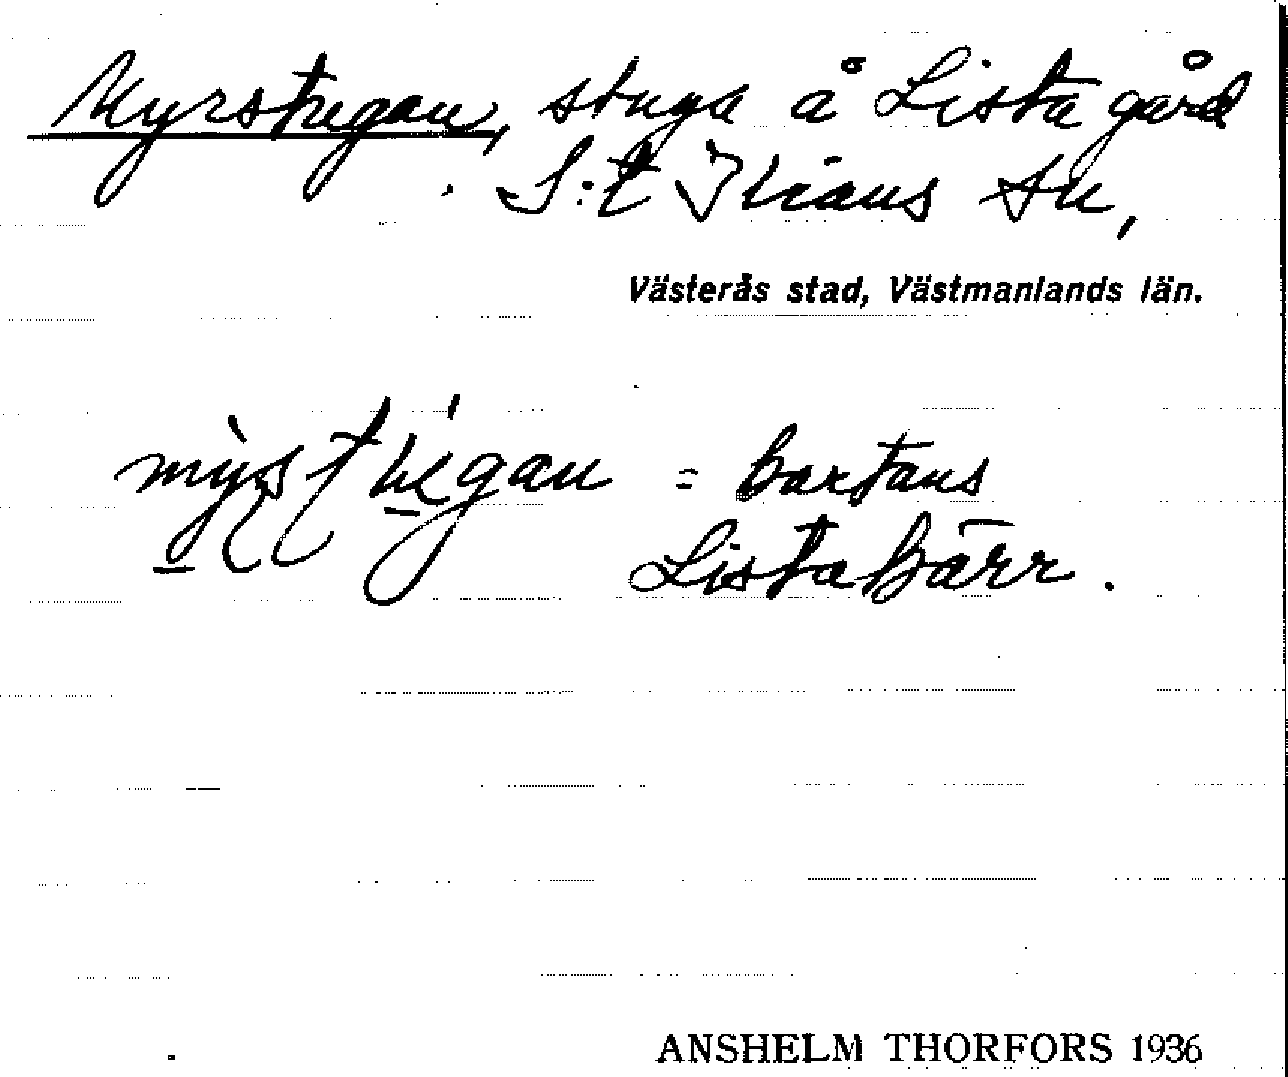 Myrstugan, stuga å Lista gård
S:t Ilians sn,
Västerås stad, Västmanlands län.
= bortans
Lista
ANSHELM THORFORS 1936